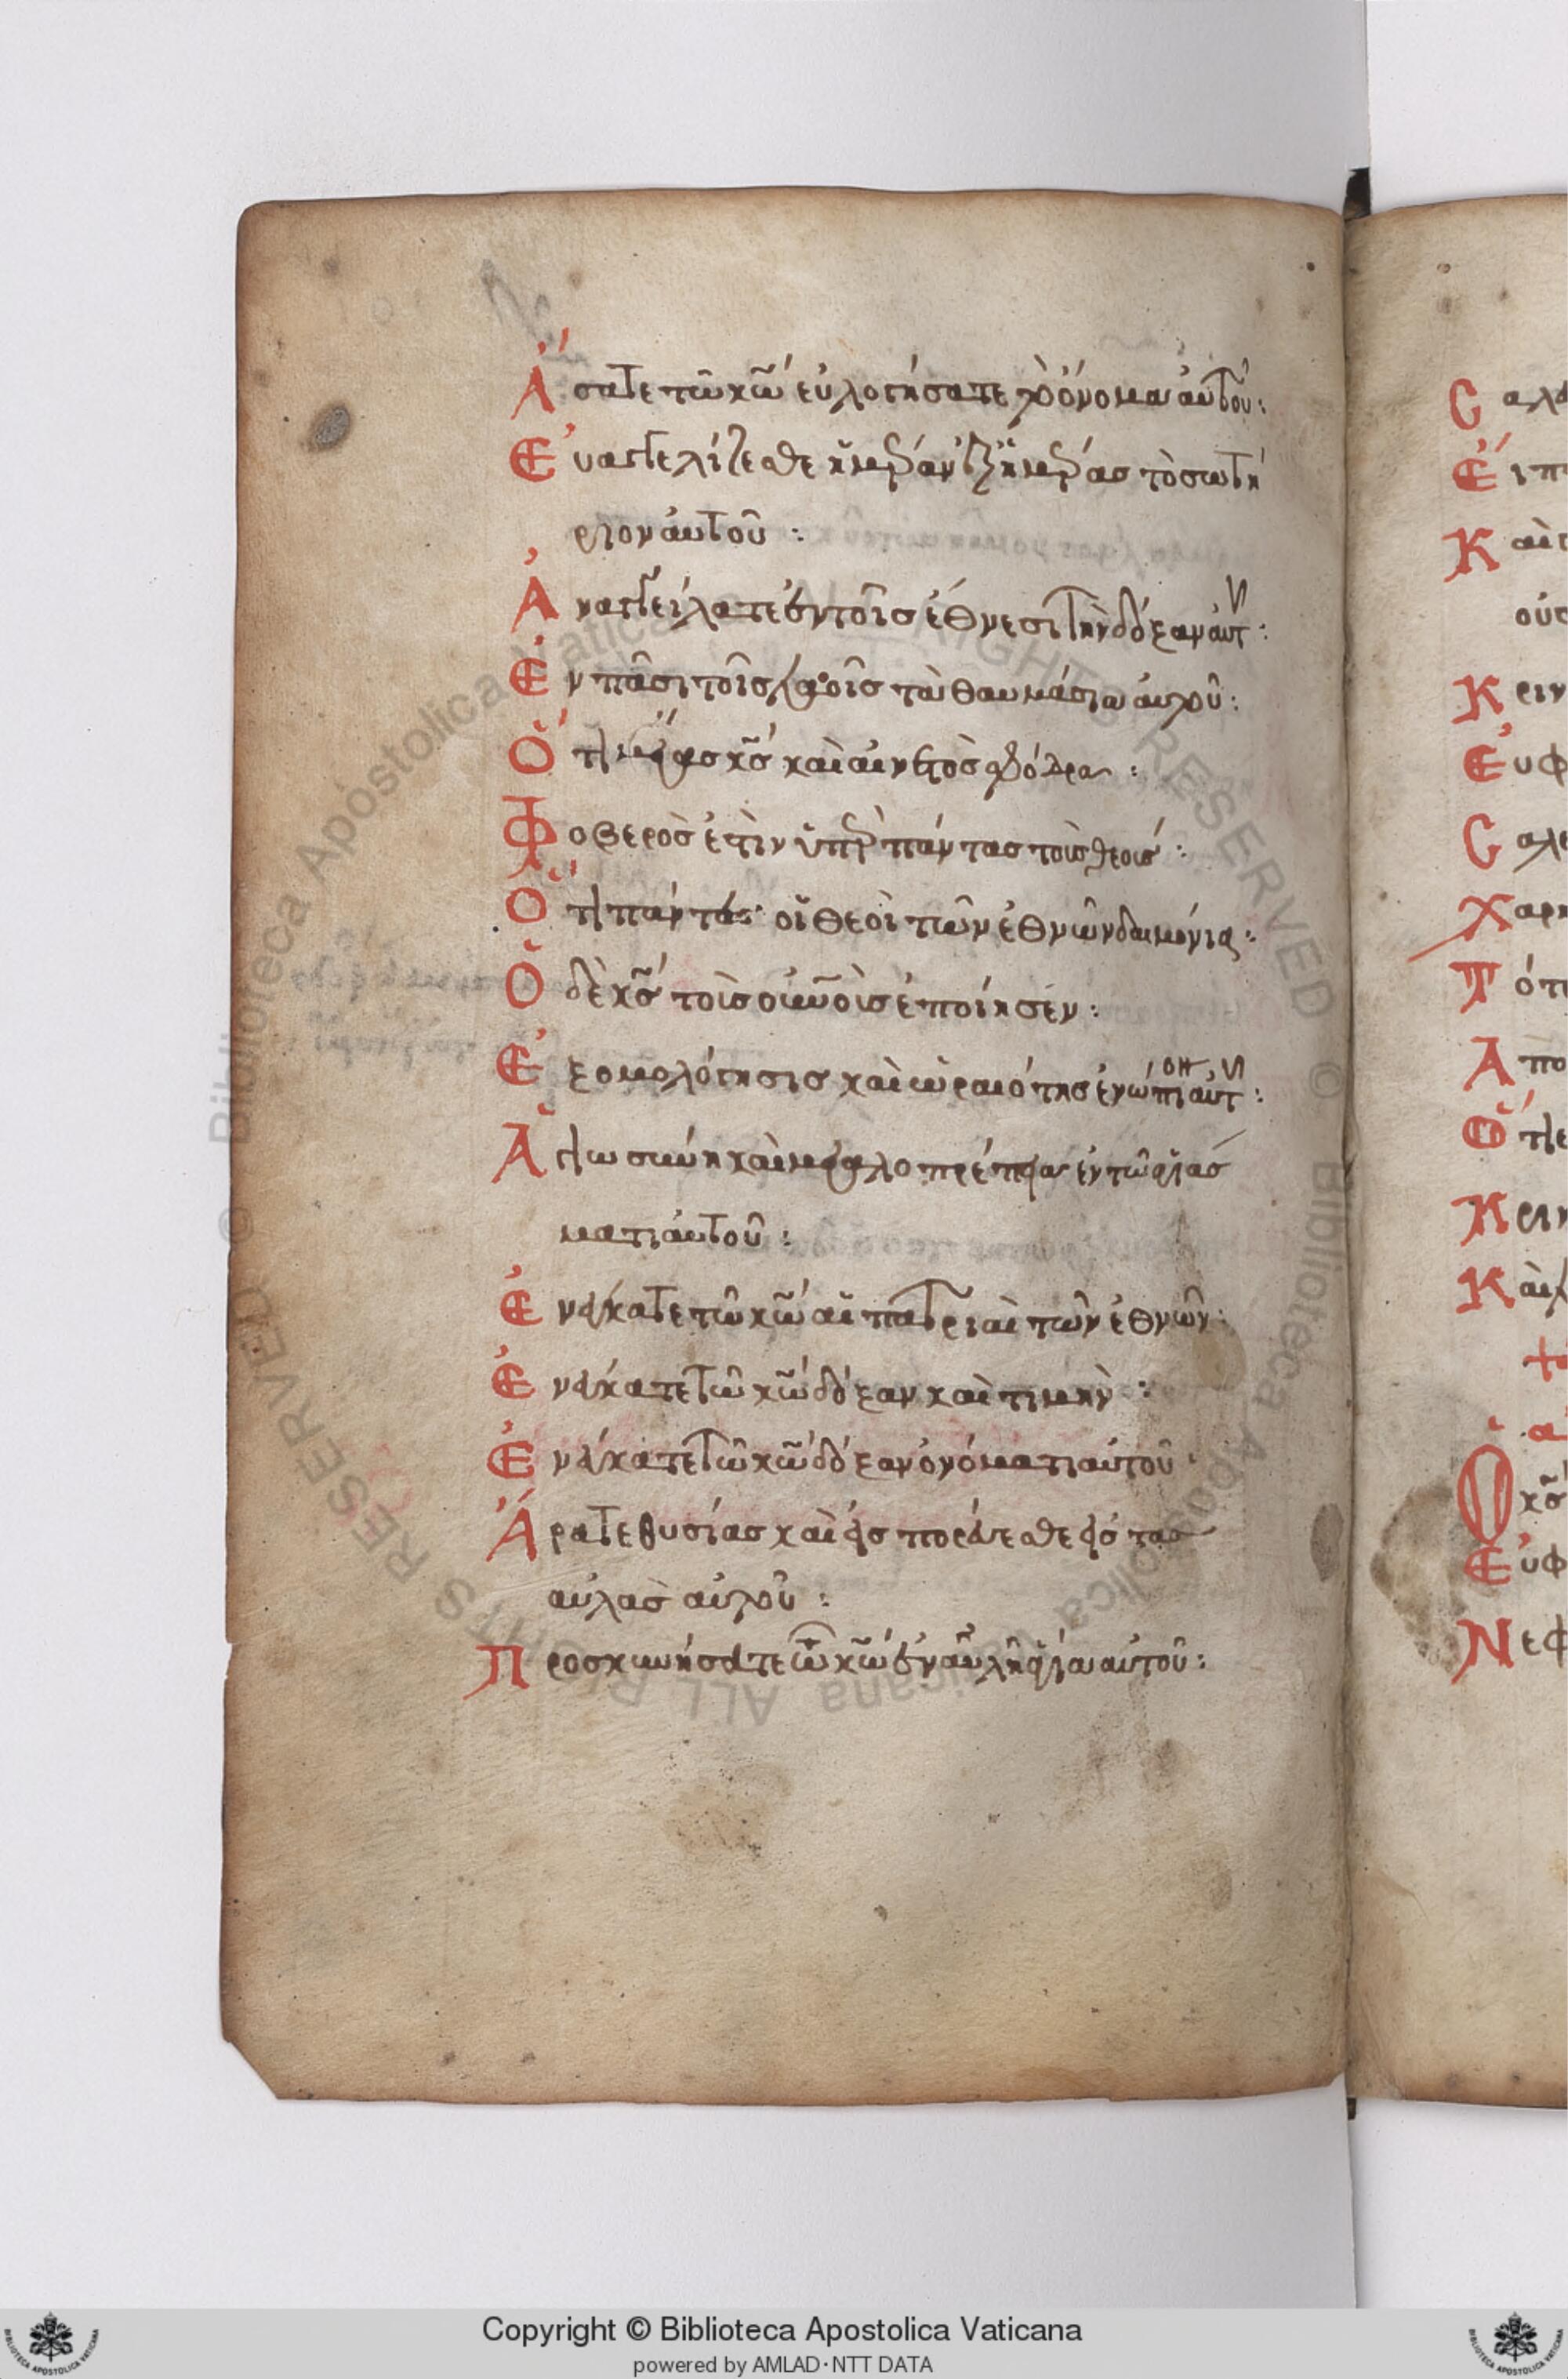 Ἄσατε τῶ κῶ εὐλογήσατε τὸ ὄνομα αὐτοῦ:
Εὐαγγελίζεσθε ἡμέραν ἐξ ἡμέρας τὸ σωτή
ριον αὐτοῦ:
Ἀναγγείλατε ἐν τοῖς ἔθνεσι τὴν δόξαν αὐτ:
Ἐν πᾶσι τοῖς λαοῖς τὰ θαυμάσια αὐτοῦ:
Ὅτι μέγας κς καὶ αἰνετὸς σφόδρα:
Φοβερὸς ἐστὶν ὑπὲρ πάντας τοὺς θεούς:
Ὅτι πάντες οἱ θεοὶ τῶν ἐθνῶν δαιμόνια:
Ὁ δὲ κς τοὺς οὐνοὺς ἐποίησεν:
Ἐξομολόγησις καὶ ὡραιότης ἐνώπιον αὐτ:
Ἁγιωσύνη καὶ μεγαλοπρέπεια ἐν τῶ ἁγιάσ
ματι αὐτοῦ:
Ἐνέγκατε τῶ κῶ αἱ πατριαὶ τῶν ἐθνῶν:
Ἐνέγκατε τῶ κῶ δόξαν καὶ τιμὴν:
Ἐνέγκατε τῶ κῶ δόξαν ὀνόματι αὐτοῦ:
Ἄρατε θυσίας καὶ εἰσπορεύεσθε εἰς τὰς
αὐλὰς αὐτοῦ:
Προσκυνήσατε τῶ κῶ ἐν αὐλῆ ἁγία αὐτοῦ:
Copyright © Biblioteca Apostolica Vaticana
powered by AMLAD·NTT DATA